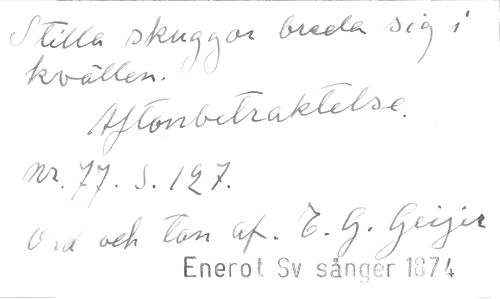 Stilla skuggor breda sig i
kvällen.
Aftonbetraktelse.
Nr. 77. S. 127.
Ord och ton af. E. G. Geijer
Enerot Sv sånger 1874